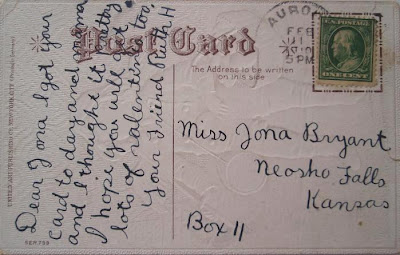 Post Card
The Address to be written
on this side
Dear Jona I got your
card to day and mama
and I thought it pretty
I hope you will get
lots of valentines too
Your Friend Ruth H
UNITED ART PUBLISHING CO. NEW YORK CITY
AURO
FEB
5 PM
ONE CENT
Miss Jona Bryant
Neosho Falls
Kansas
Box 11